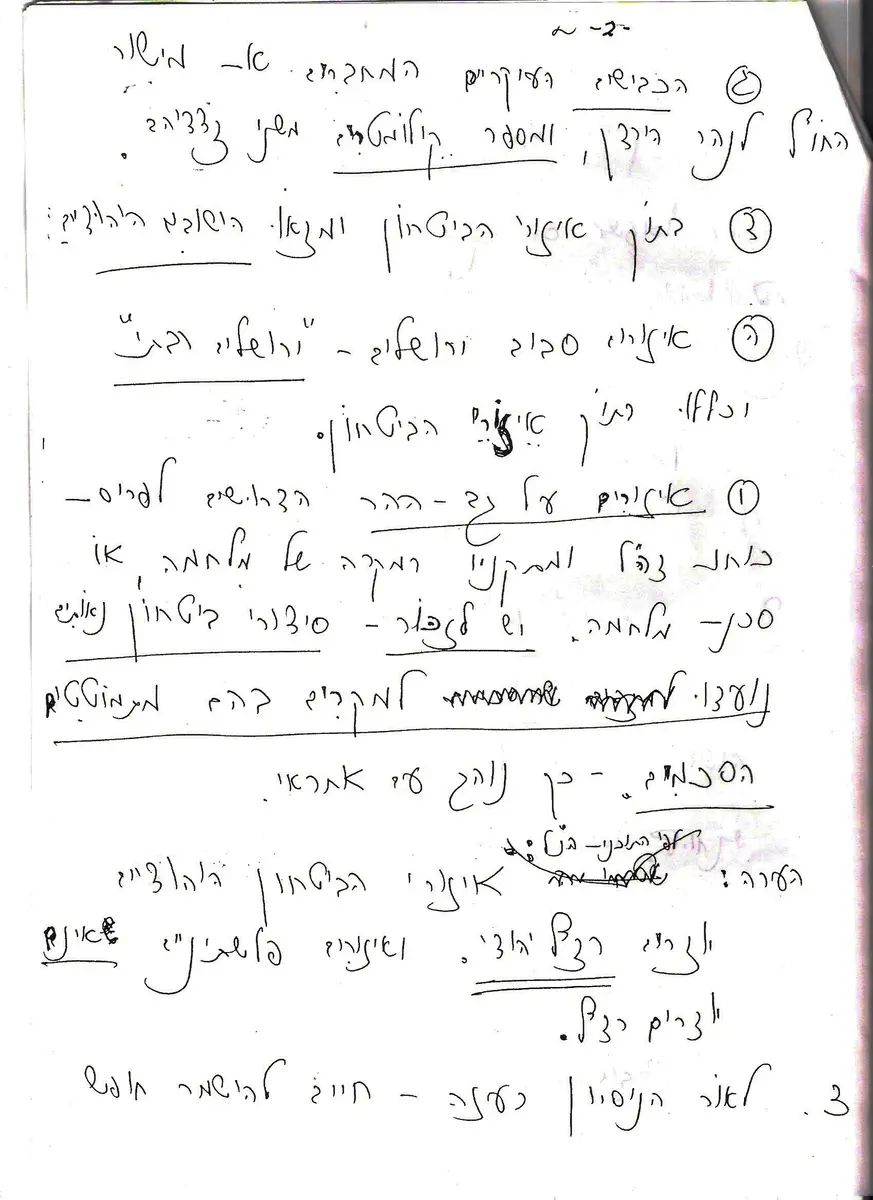 -2-
(ג) הכבישים העיקריים המחברים את מישור
החוף לנהר הירדן, ומספר קילומטרים משני צדדיהם.
(ד) בתוך איזורי הביטחון ימצאו הישובים היהודיים.
(ה) איזורים סבוב ירושלים - "ירושלים רבתי"
יכללו בתוך איזורי הביטחון.
(ו) איזורים על גב-ההר הדרושים לפריסת-
כוחות צה"ל ומתקניו במקרה של מלחמה, או
סכנת-מלחמה. יש לזכור - סידורי ביטחון נאותים
נועדו למקרים בהם מתמוטטים
הסכמים. - כך נוהג עם אחראי.
לפי התוכנית הנ"ל:
הערה: איזורי הביטחון היהודיים
יוצרים רצף יהודי. ואיזורים פלשתיניים שאינם
יוצרים רצף.
3. לאור הניסיון בעזה - חייב להישמר חופש